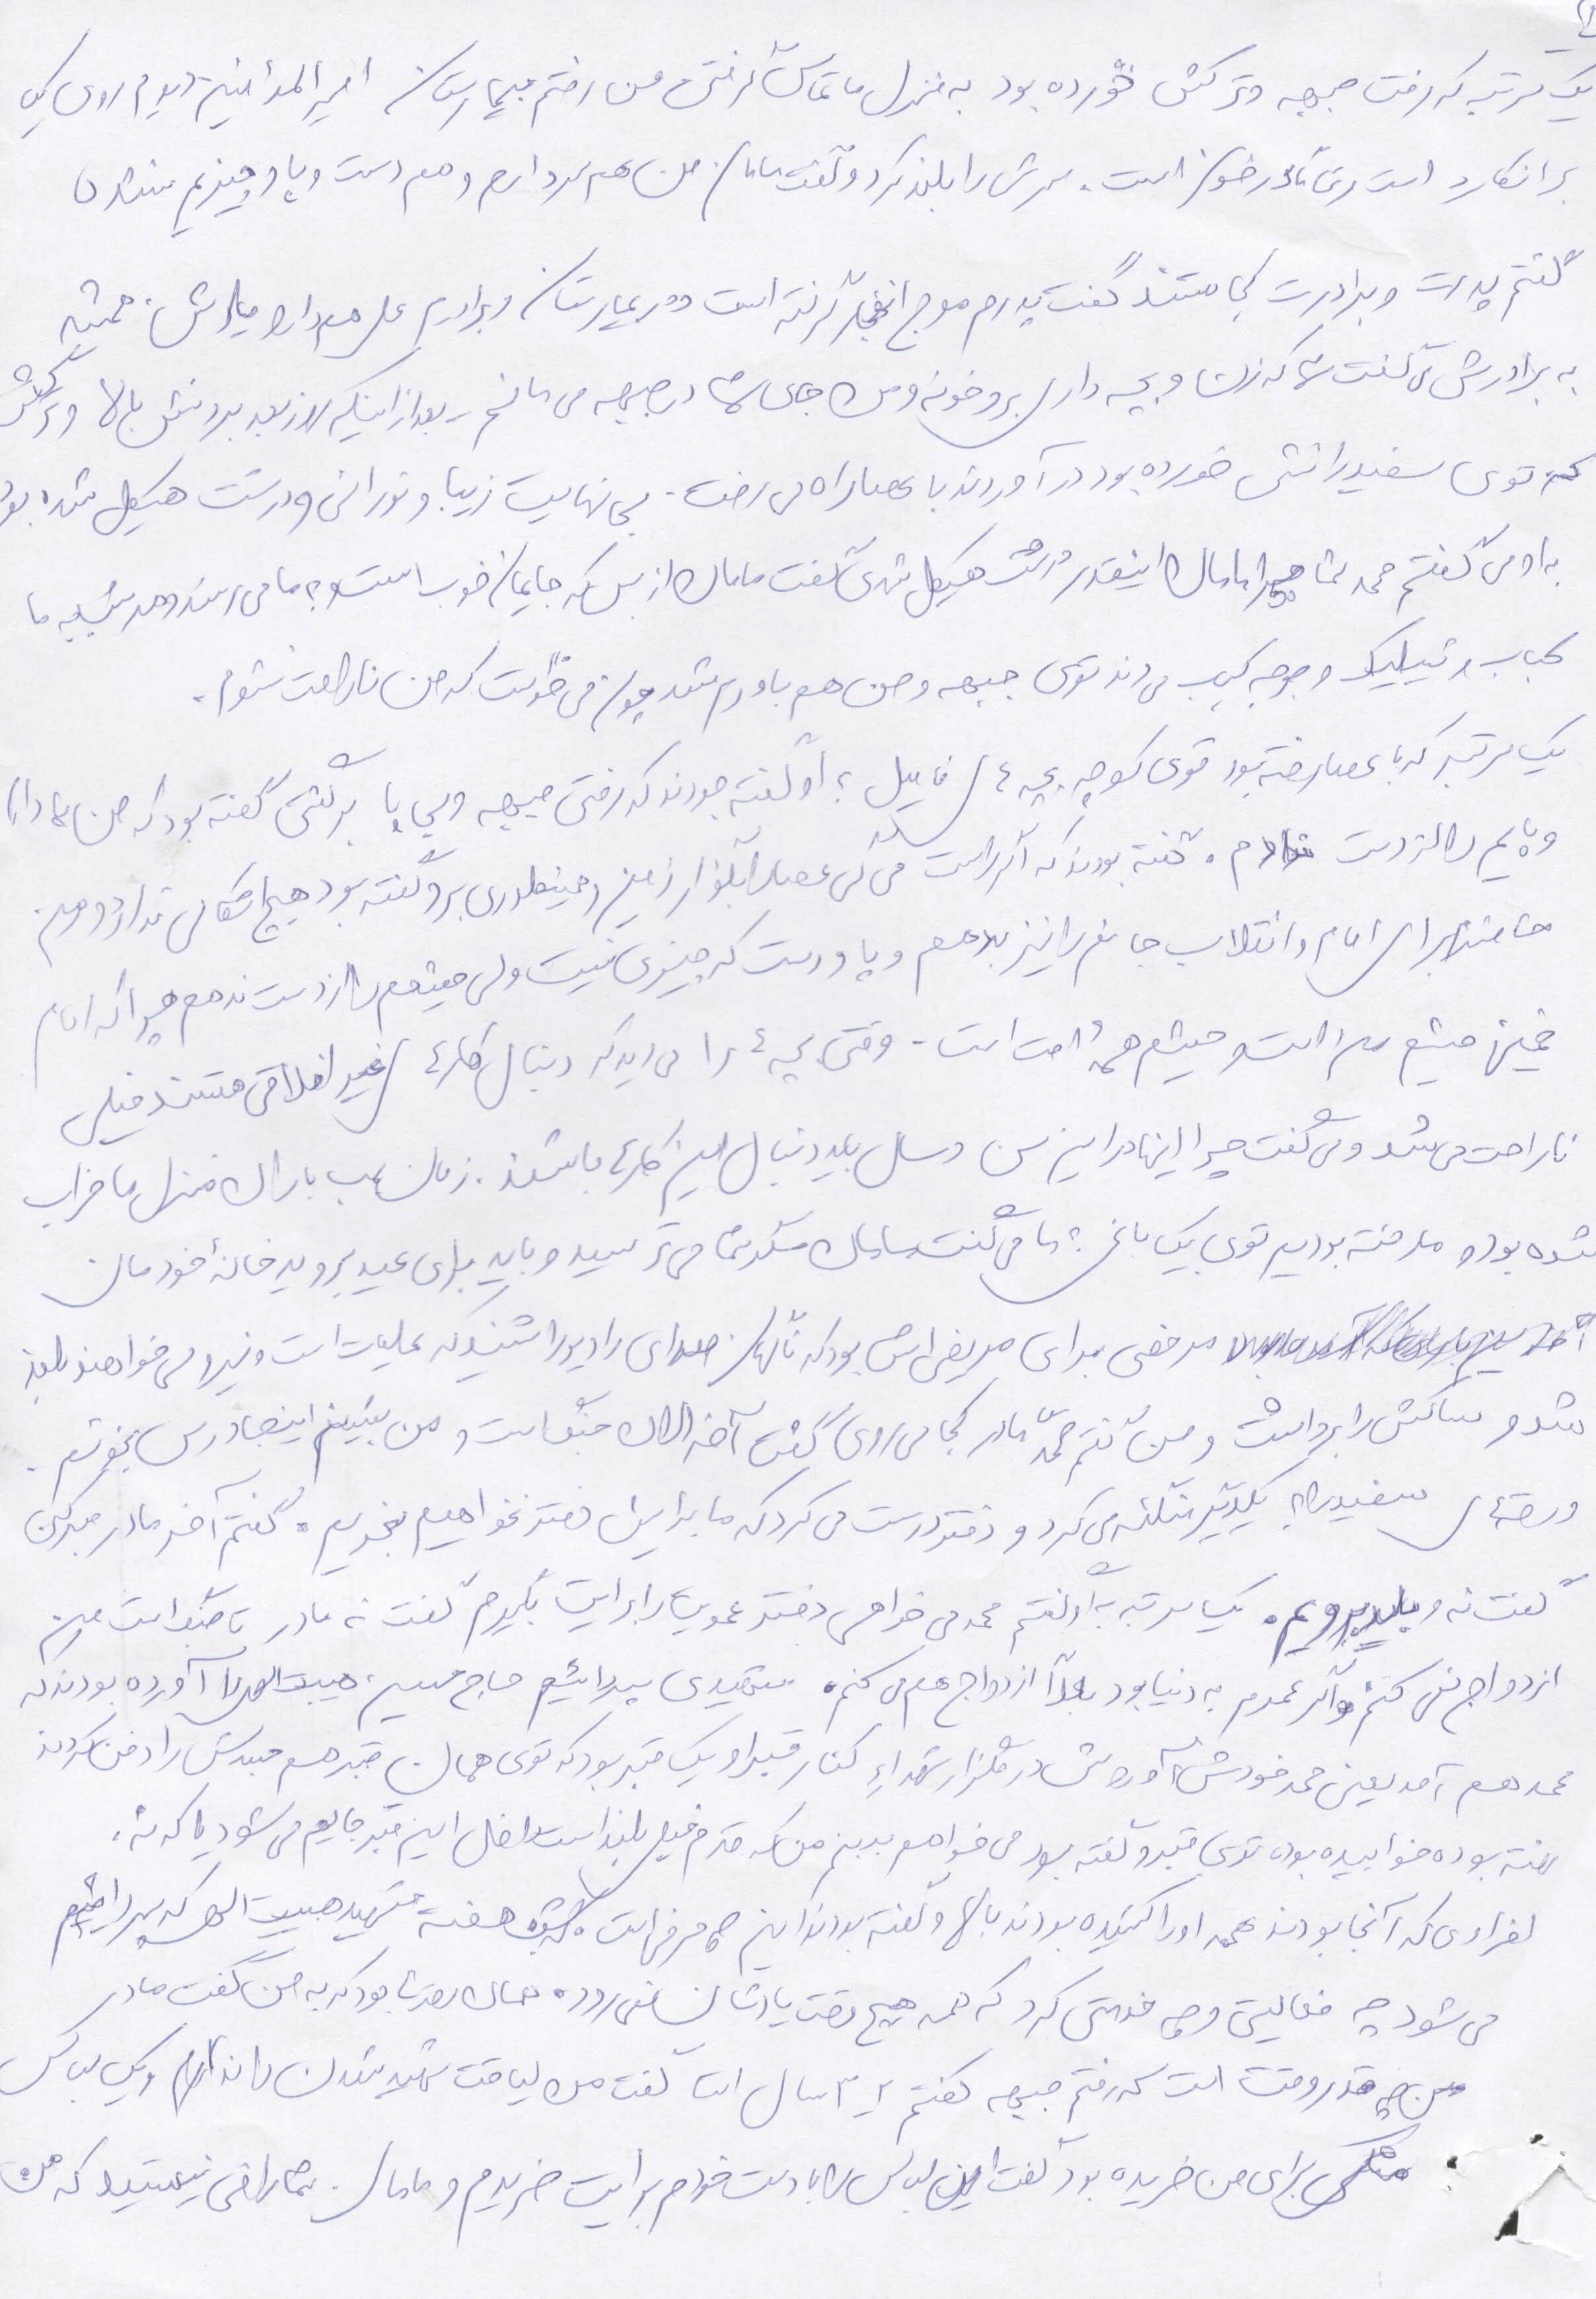 یک مرتبه که رفت جبهه و ترکش خورده بود به منزل ما تماس گرفتن من رفتم بیمارستان امیرالمؤمنین دیدم روی یک
برانکارد است رنگ در خون است. سرش را بلند کرد و گفت مامان من هم سر دارم و هم دست و پا و چیزیم نشده
گفتم پدرت و برادرت کجا هستند گفت پدرم موج انفجار گرفته است در بیمارستان و برادرم علی هم همیشه
به برادرش می گفت شما که زن و بچه داری برو خونه و من جای شما در جبهه می مانم - بعد از اینکه روز بعد بردنش بالا و ترکش
که توی سفید رانش خورده بود در آوردند با عصا راه می رفت. بی نهایت زیبا و نورانی و درشت هیکل شده بود
به او می گفتم محمد شما چرا مامان اینقدر درشت هیکل شدی گفت مامان از بس که جایمان خوب است و به ما می رسند به ما
کباب و شیشلیک و جوجه کباب می دند توی جبهه و من هم باورم شد چون نمی خواست که من ناراحت شوم.
یک مرتبه که با عصا رفته بود توی کوچه بچه های فامیل به او گفته بودند که رفتی جبهه و بی پا برگشتی گفته بود که من
و پایم را از دست ندادم. گفته بودند که اگر راست می گی عصا را بگذار زمین و همینطوری برو گفته بود هیچ اشکالی ندارد و من
حاضرم برای امام و انقلاب جانم را نیز بدهم و پا و دست که چیزی نیست ولی چشمم را از دست ندهم چرا که امام
خمینی چشم من است و چشم همه امت است - وقتی بچه ها را می دید که دنبال کارهای غیر اخلاقی هستند خیلی
ناراحت می شد و می گفت چرا اینها در این سن و سال باید دنبال این کارها باشند. زمان بمب باران منزل ما خراب
شده بود و ما رفته بودیم توی یک باغی به ما می گفت مامان مگر شما می ترسید و باید برای عید بروید خانه خودمان
مرخصی برای مریضی اش بود که ناگهان صدای رادیو را شنید که عملیات است و نیرو می خواهند بلند
شد و ساکش را برداشت و من گفتم محمد مادر کجا می روی گفت آخر الان جنگ است و من بشینم اینجا درس بخونم.
ورقه های سفید را به یکدیگر منگنه می کرد و دفتر درست می کرد که ما برایش دفتر نخواهیم بخریم. گفتم آخر مادر صبر کن
گفت نه و باید بروم. یک مرتبه به او گفتم محمد می خواهی دختر عمویت را برایت بگیرم گفت نه مادر تا جنگ است من
ازدواج نمی کنم و اگر عمرم به دنیا بود بعداً ازدواج هم می کنم. شهیدی به اسم حاج حسین هیبت اله را آورده بودند که
محمد هم آمد یعنی محمد خودش آوردش در گلزار شهداء کنار قبر او یک قبر بود که توی همان قبر هم جسدش را دفن کردند
رفته بوده خوابیده بوده توی قبر و گفته بود می خواهم ببینم من که قدم خیلی بلند است داخل این قبر جایم می شود یا که نه،
افرادی که آنجا بودند همه او را کشیده بودند بالا و گفته بودند این چه حرفی است. هفته شهید هیبت الهی که
می شود چه فعالیتی و چه خدمتی کرد که همه هیچ وقت یادشان نمی رود. همان روزها بود که به من گفت مادر
من چه قدر وقت است که رفتم جبهه گفتم ۲ - ۳ سال است گفت من لیاقت شهید شدن را ندارم و یک لباس
مشکی برای من خریده بود گفت این لباس را با دست خودم برایت خریدم و مامان شما راضی نیستید که من